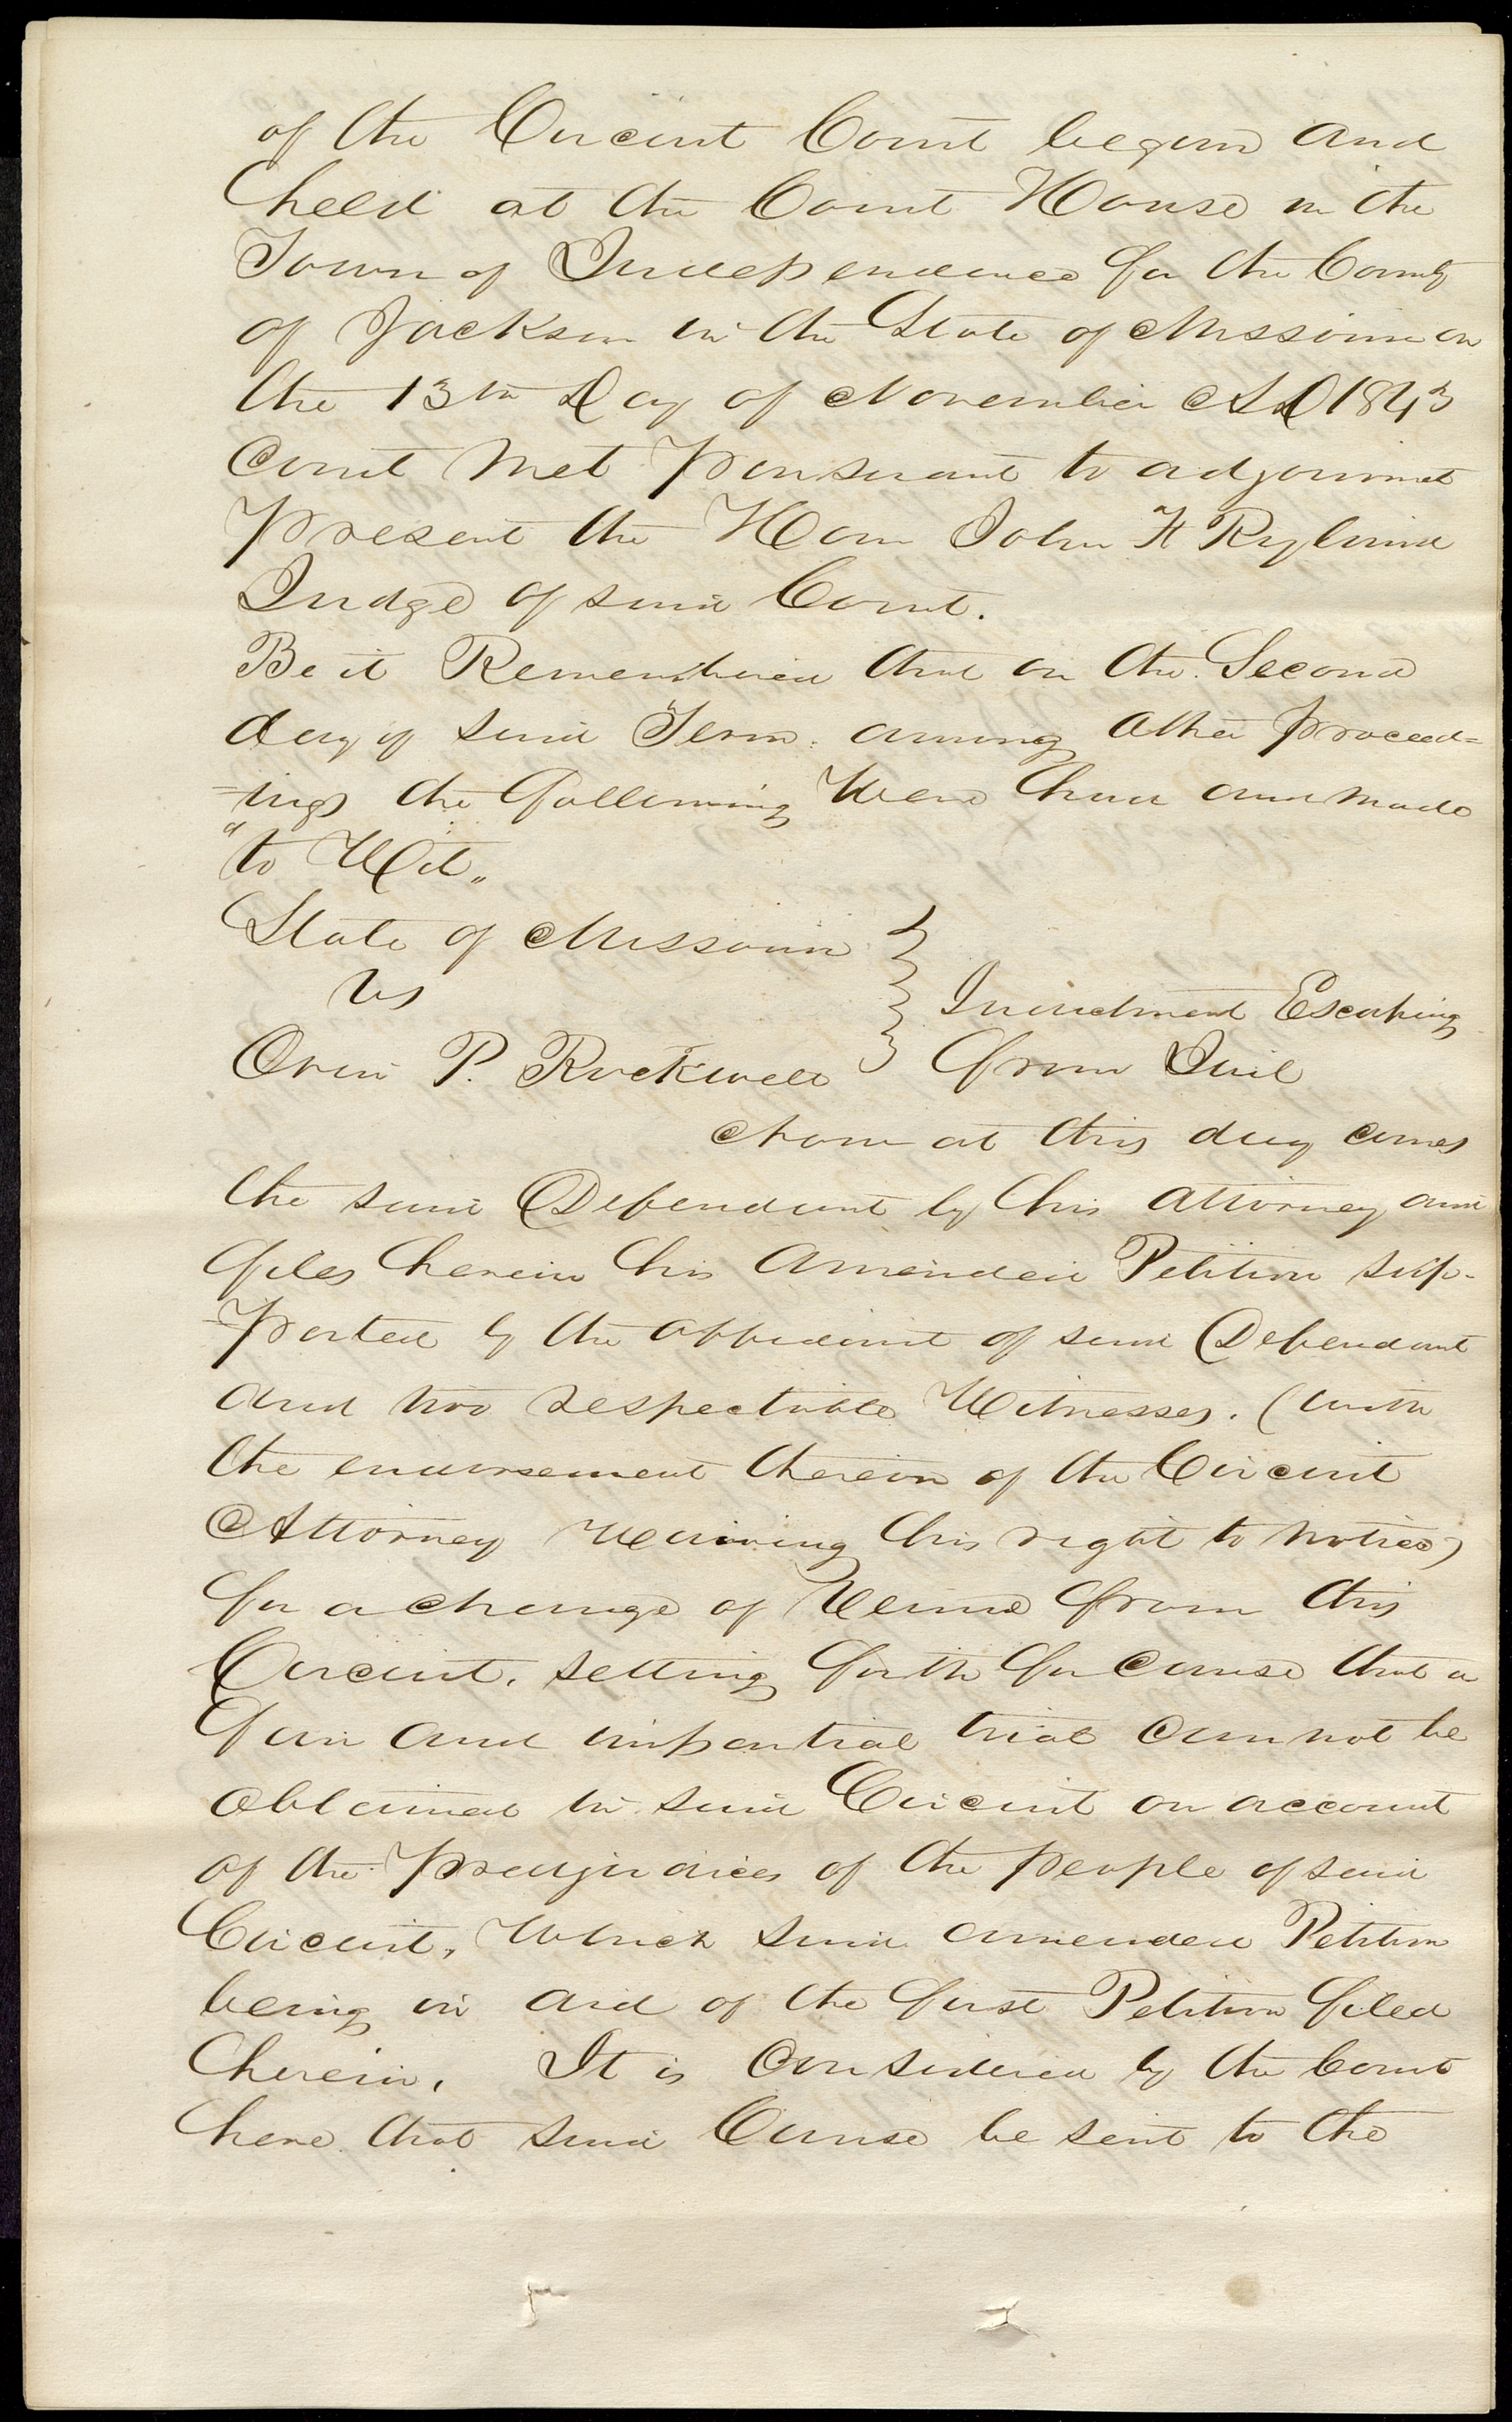 of the Circuit Court begun and
held at the Court House in the
Town of Independence for the County
of Jackson in the State of Missouri on
the 13th Day of November AD 1843
Court Met Pursuant to adjournmet
Present the Hon John F Ryland
Judge of said Court.
Be it Remembered that on the Second
day of said Term. among other Proceed=
=ings the following Were had and made
"to Wit"
State of Missouri
vs
Indictment Escaping
Orin P. Rockwell
from Jail
Now at this day comes
the said Defendant by his attorney and
files herein his amended Petition sup-
-Ported by the affidavit of said Defendant
and two respectable Witnesses. (with
the endorsement thereon of the Circuit
Attorney Waiving his right to notice)
for a change of Venue from this
Circuit. setting forth for cause that a
fair and impartial trial cannot be
obtained in said Circuit on account
of the Predjudices of the people of said
Circuit, Which said amended Petition
being in aid of the first Petition filed
herein, It is Considered by the Court
here that said Cause be sent to the